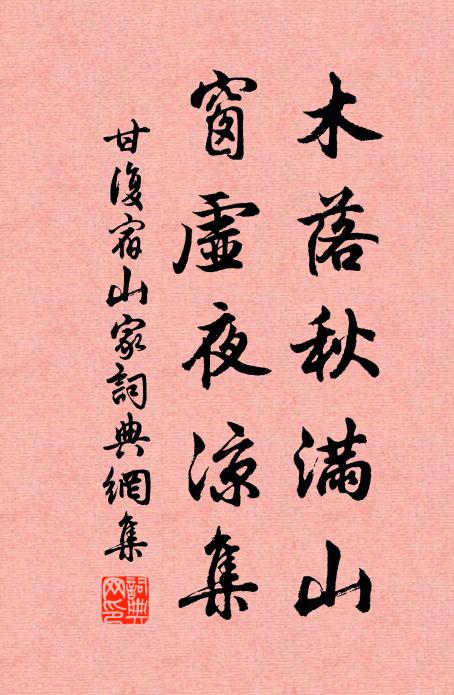 木落秋滿山
窗虛夜涼集
甘復宿山家詞典網集
詞典
网印